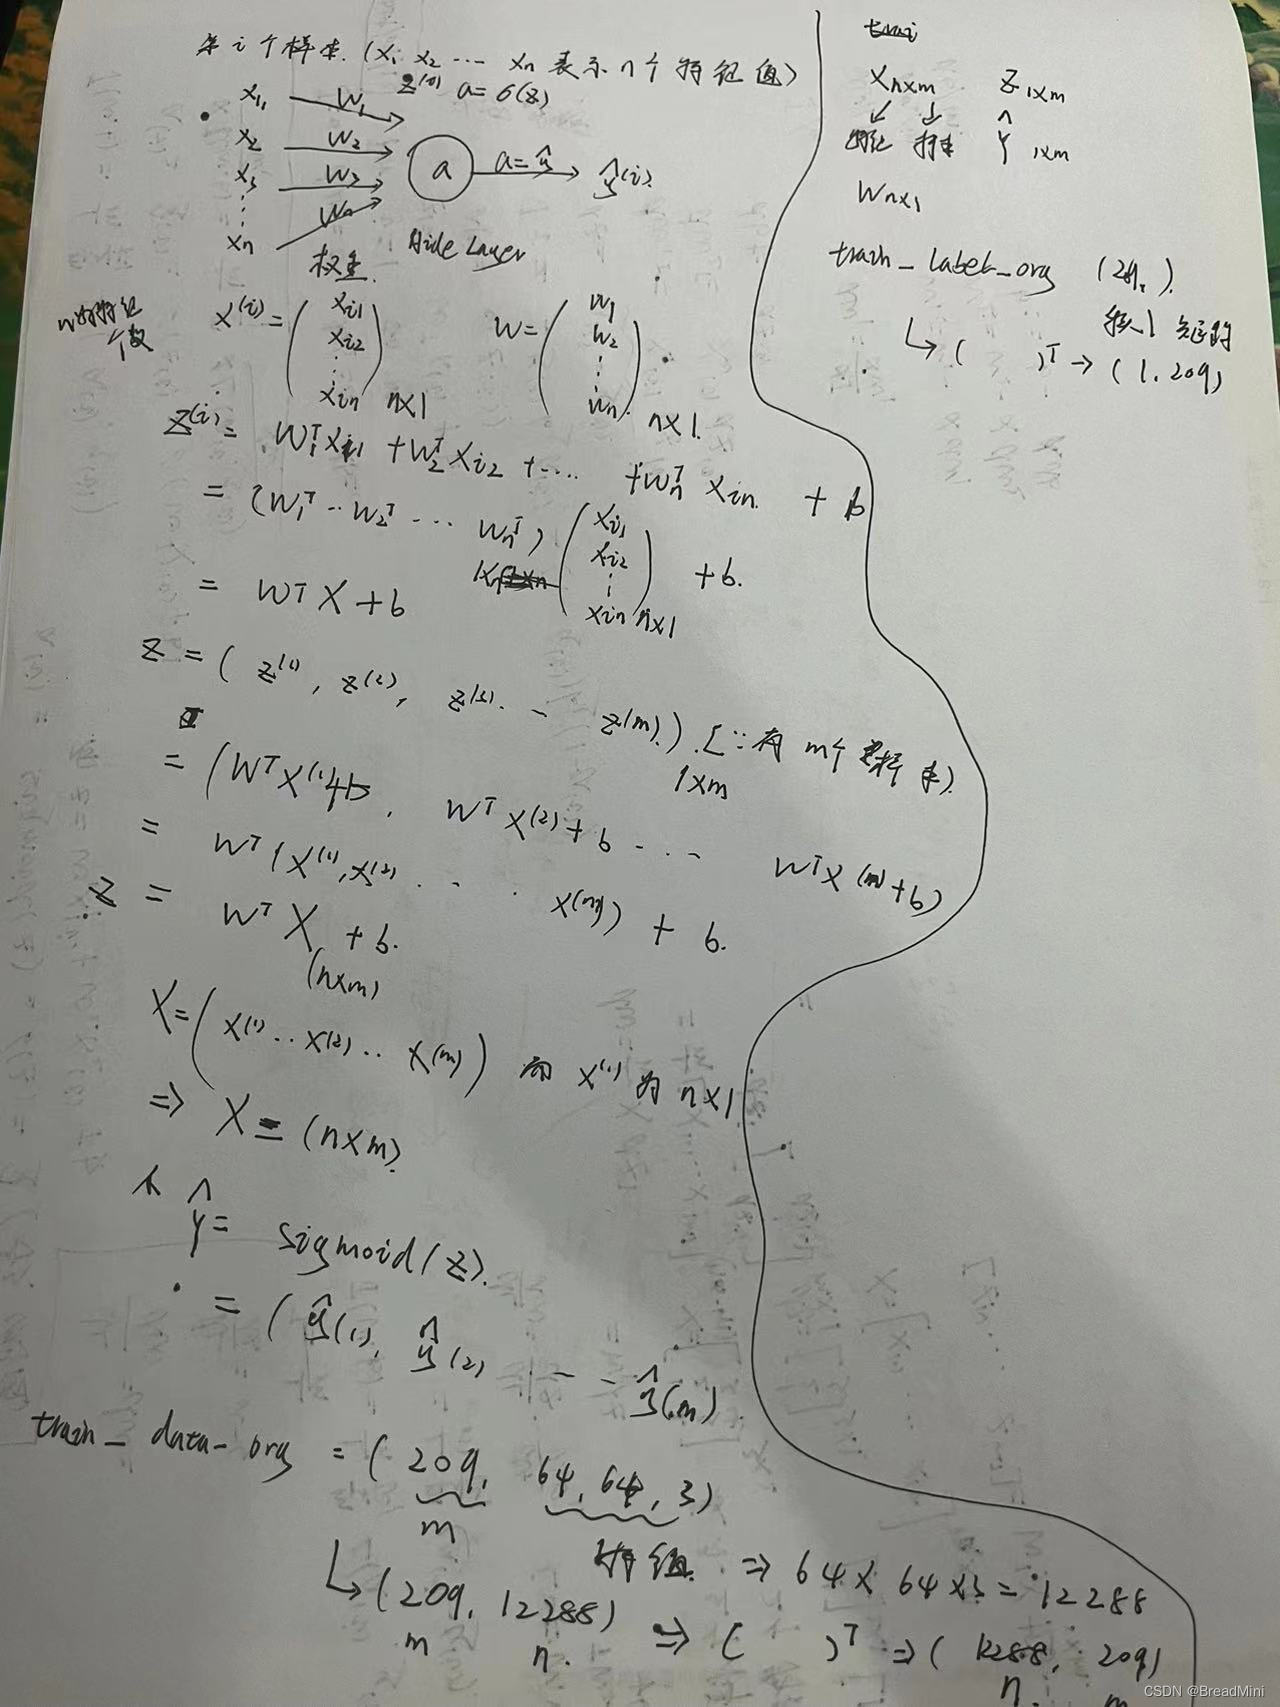 第 i 个样本. (x₁ x₂ ⋯ xₙ 表示 n 个特征值)
z⁽ⁱ⁾ a = σ(z)
x₁, w₁
x₂ w₂
x₃ w₃ a a = ŷ ŷ⁽ⁱ⁾.
⋮
xₙ wₙ
权重. Hide Layer
n为特征个数
x⁽ⁱ⁾ = (xᵢ₁ xᵢ₂ ⋮ xᵢₙ) n×1 w = (w₁ w₂ ⋮ wₙ) n×1.
z⁽ⁱ⁾ = w₁ᵀxᵢ₁ + w₂ᵀxᵢ₂ + ⋯ + wₙᵀxᵢₙ + b
= (w₁ᵀ ⋯ w₂ᵀ ⋯ wₙᵀ) 1×n (xᵢ₁ xᵢ₂ ⋮ xᵢₙ) n×1 + b.
= wᵀX + b
Z = (z⁽¹⁾, z⁽²⁾, z⁽³⁾ ⋯ z⁽ᵐ⁾) 1×m [∵有 m个样本).
= (wᵀx⁽¹⁾+b, wᵀx⁽²⁾+b ⋯ wᵀx⁽ᵐ⁾+b)
= wᵀ(x⁽¹⁾, x⁽²⁾ ⋯ x⁽ᵐ⁾) + b.
Z = wᵀX + b.
(n×m)
X = (x⁽¹⁾ ⋯ x⁽²⁾ ⋯ x⁽ᵐ⁾) 而 x⁽¹⁾ 为 n×1
⇒ X = (n×m)
Ŷ = sigmoid(Z).
= (ŷ(1), ŷ(2) ⋯ ŷ(m)
train_data_org = (209, 64, 64, 3)
m 特征 ⇒ 64×64×3 = 12288
↳ (209, 12288) ⇒ ( )ᵀ ⇒ (12288, 209)
m n. n m
trai
Xₙₓₘ Z₁ₓₘ
特征 样本 Ŷ₁ₓₘ
Wₙₓ₁
train_label_org (209,).
↳ ( )ᵀ → (1, 209)
CSDN @BreadMini